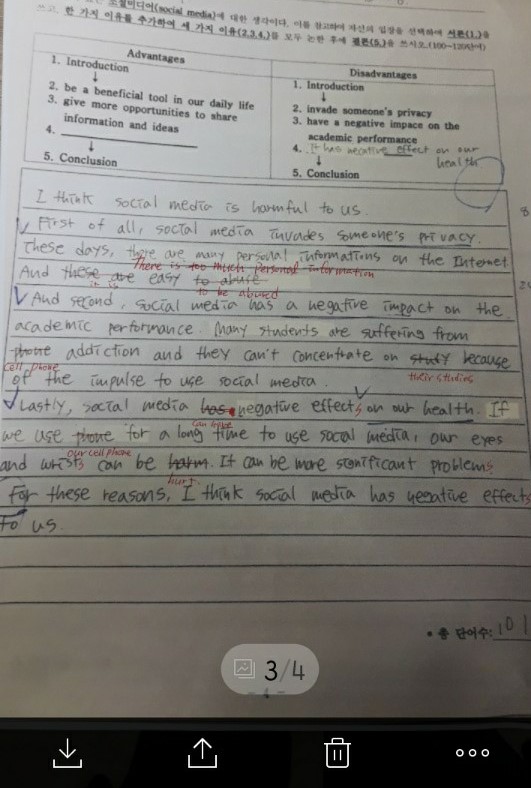 소셜미디어(social media)에 대한 생각이다. 이를 참고하여 자신의 입장을 선택하여 서론(1.)을
쓰고, 한 가지 이유를 추가하여 세 가지 이유(2.3.4.)를 모두 논한 후에 결론(5.)을 쓰시오.(100~120단어)
Advantages
1. Introduction
↓
2. be a beneficial tool in our daily life
3. give more opportunities to share
information and ideas
4.
↓
5. Conclusion
Disadvantages
1. Introduction
↓
2. invade someone's privacy
3. have a negative impace on the
academic performance
4. It has negative effect on our
health
↓
5. Conclusion
I think social media is harmful to us.
First of all, social media invades someone's privacy.
These days, there are many personal informations on the Internet
There is too much personal information
And these are easy to abuse
it is
to be abused
And second, social media has a negative impact on the
academic performance. Many students are suffering from
phone addiction and they can't concentrate on study because
cell phone
their studies
of the impulse to use social media.
Lastly, social media has negative effects on our health. If
can have
we use phone for a long time to use social media, our eyes
our cell phone
and wrists can be harm. It can be more significant problems
hurt.
For these reasons, I think social media has negative effects
to us.
• 총 단어수: 101
3/4
- 4 -